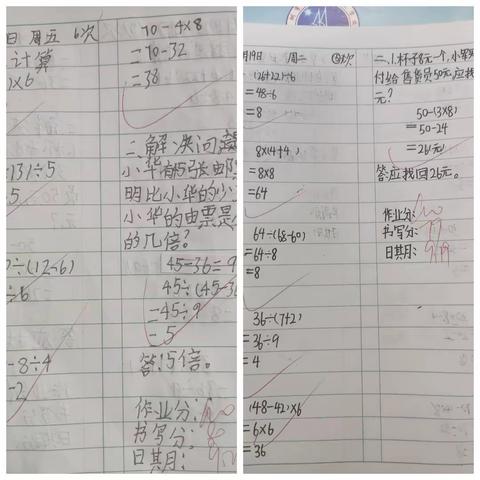 日 周五 6次
计算
)×6
=131÷5
5
÷(12-6)
÷6
-8÷4
-2
70-4×8
=70-32
=38
二、解决问题
小华有45张邮
明比小华的少
小华的由票是
的几倍?
45-36=9
45÷(45-36
=45÷9
=5
答:5倍。
作业分:100
书写分:80
日其月:
月19日 周二 ③次
(26+22)÷6
=48÷6
=8
8×(4+4)
=8×8
=64
64÷(68-60)
=64÷8
=8
36÷(7+2)
=36÷9
=4
(48-42)×6
=6×6
=36
二、1.杯子8元一个,小军买
付给售货员50元,应找
元?
50-(3×8)
=50-24
=26(元)
答应找回26元。
作业分:100
书写分:
日其月:9.19